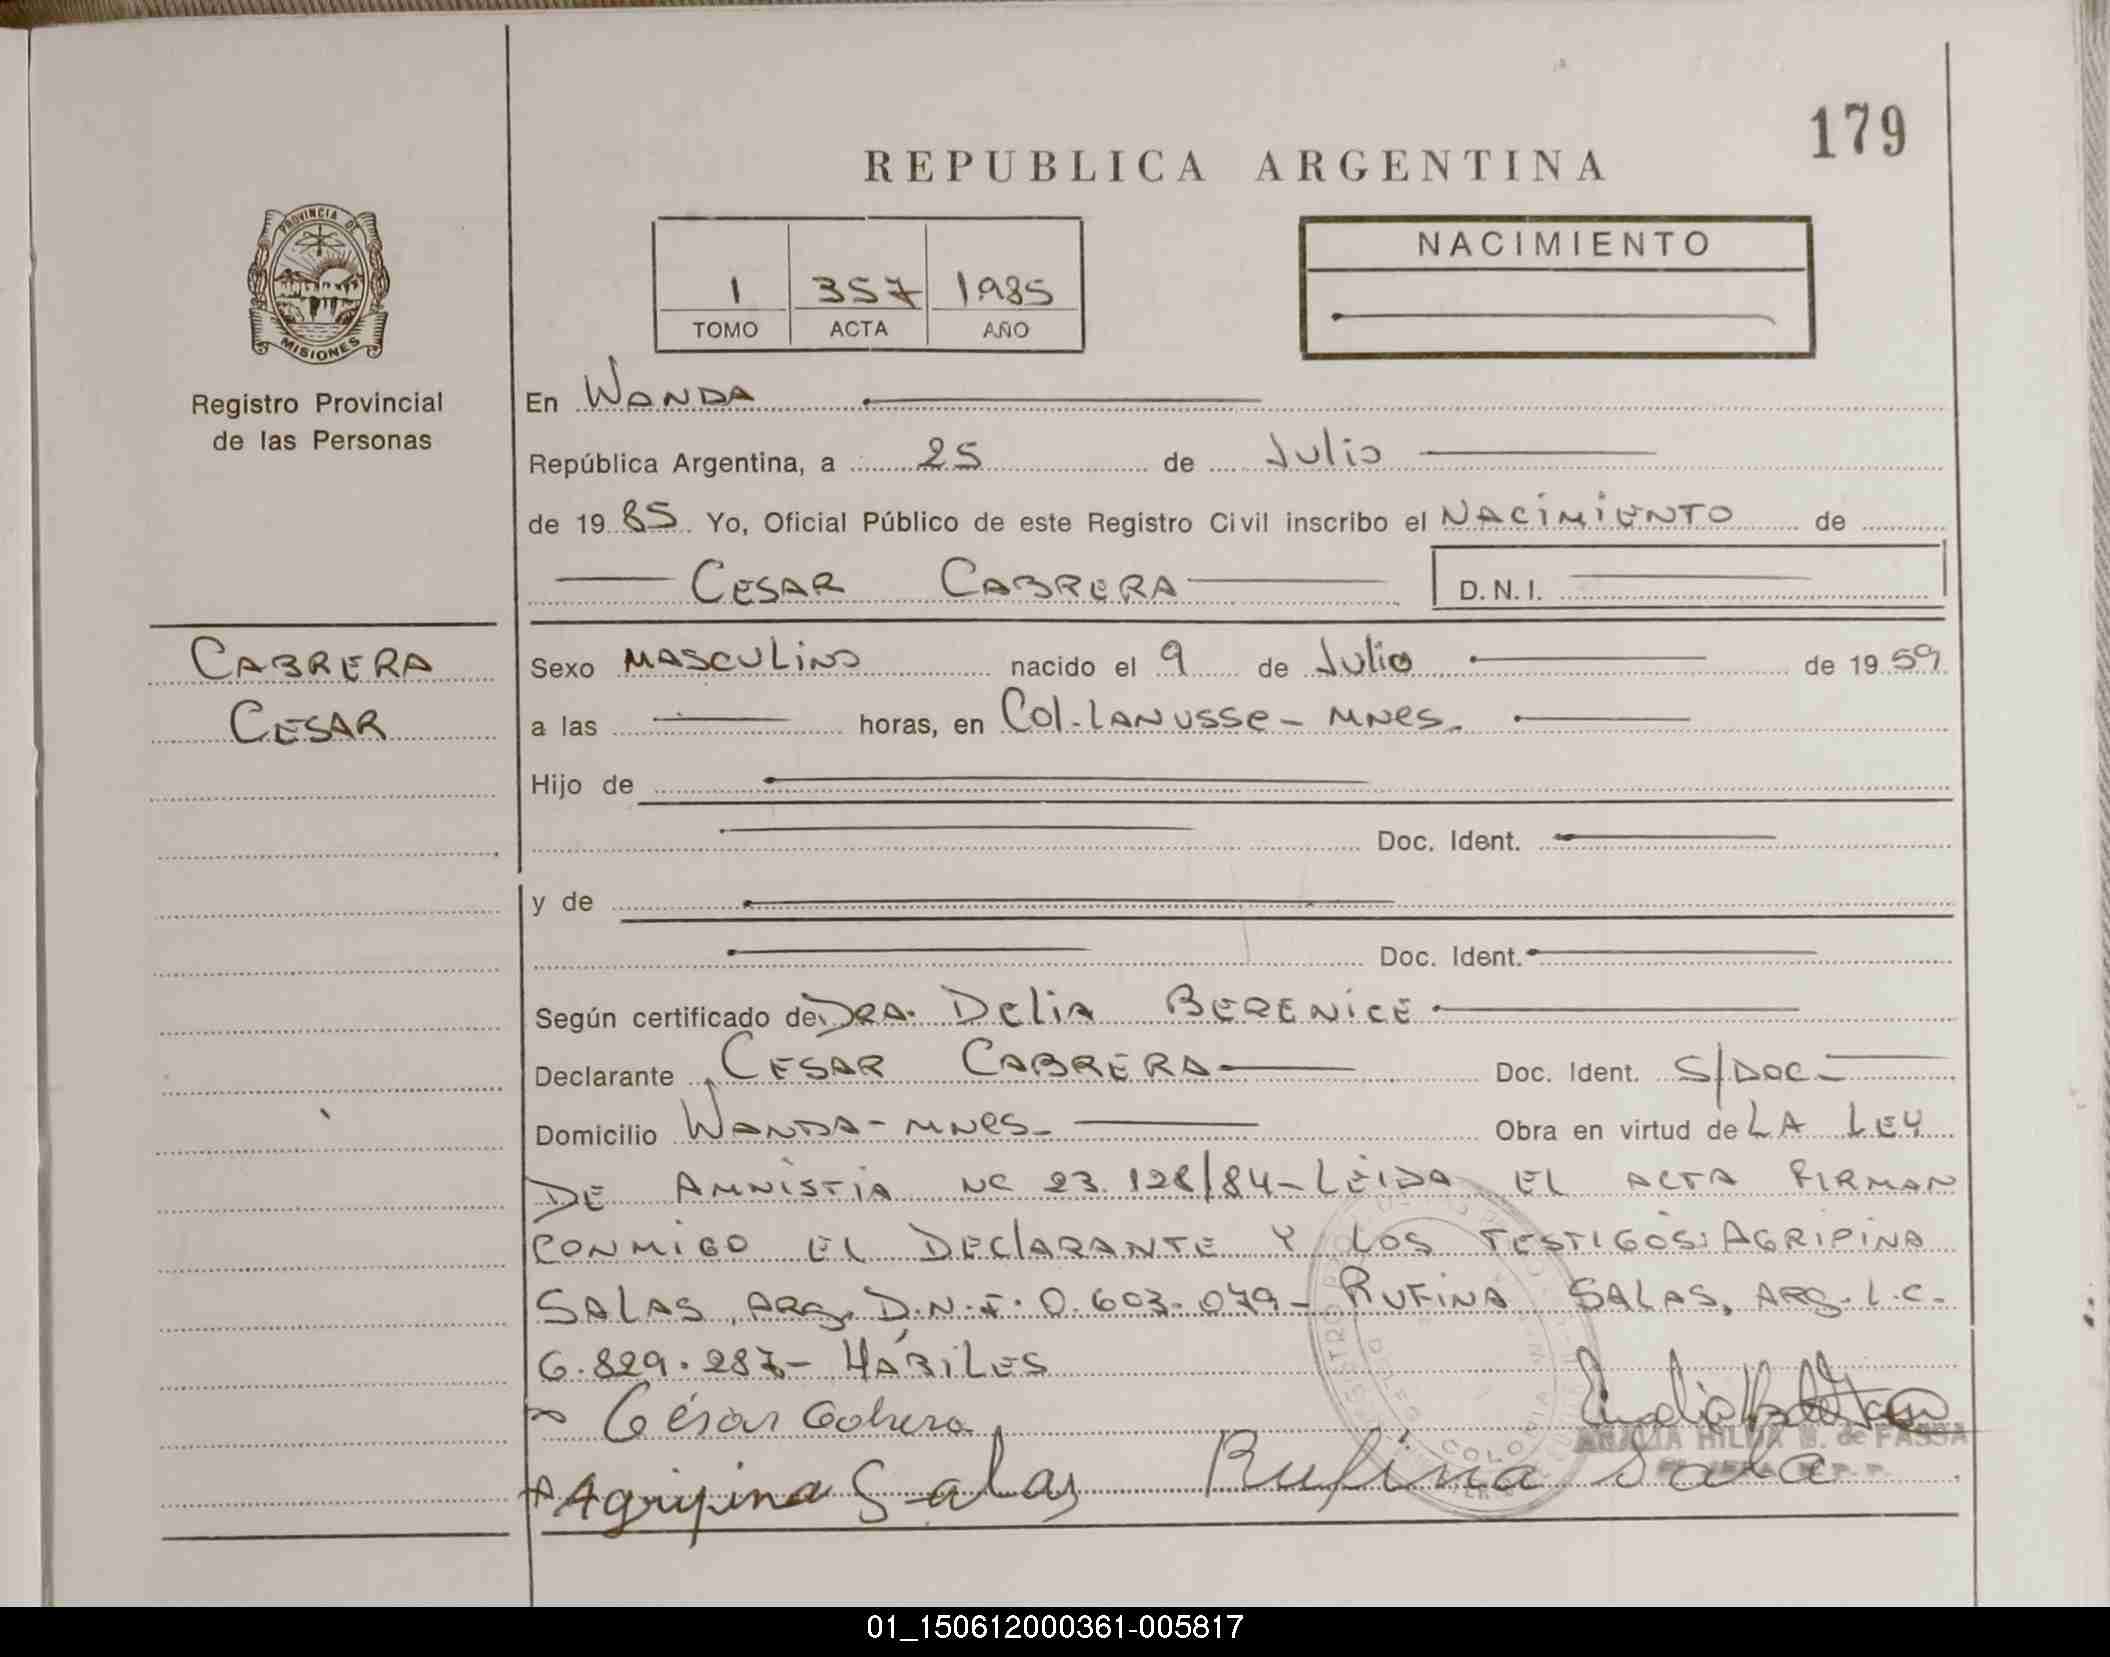 179
REPUBLICA ARGENTINA
PROVINCIA DE
MISIONES
Registro Provincial
de las Personas
1 357 1985
TOMO ACTA AÑO
NACIMIENTO
En WANDA
República Argentina, a 25 de Julio
de 19 85 Yo, Oficial Público de este Registro Civil inscribo el NACIMIENTO de
CESAR CABRERA D.N.I.
CABRERA
CESAR
Sexo MASCULINO nacido el 9 de Julio de 19 59
a las horas, en Col. LANUSSe - MNes.
Hijo de
Doc. Ident.
y de
Doc. Ident.
Según certificado de DRA. Delia BERENICE
Declarante CESAR CABRERA Doc. Ident. S/DOC-
Domicilio WANDA - MNes- Obra en virtud de LA LEY
DE AMNISTIA Nº 23.128/84 - LEIDA EL ACTA FIRMAN
CONMIGO EL DECLARANTE Y LOS TESTIGOS: AGRIPINA
SALAS, ARG. D.N.I. 0.603.079 - RUFINA SALAS, ARG. L.C.
6.829.287 - HÁBILES
César Cabrera
AMALIA HILDA W. de FASSA
Agripina Salas Rufina Sala
01_150612000361-005817